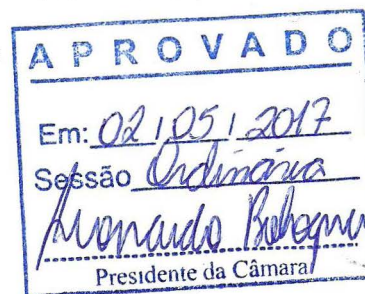 APROVADO
Em: 02/05/2017
Sessão Ordinária
Leonardo
Presidente da Câmara